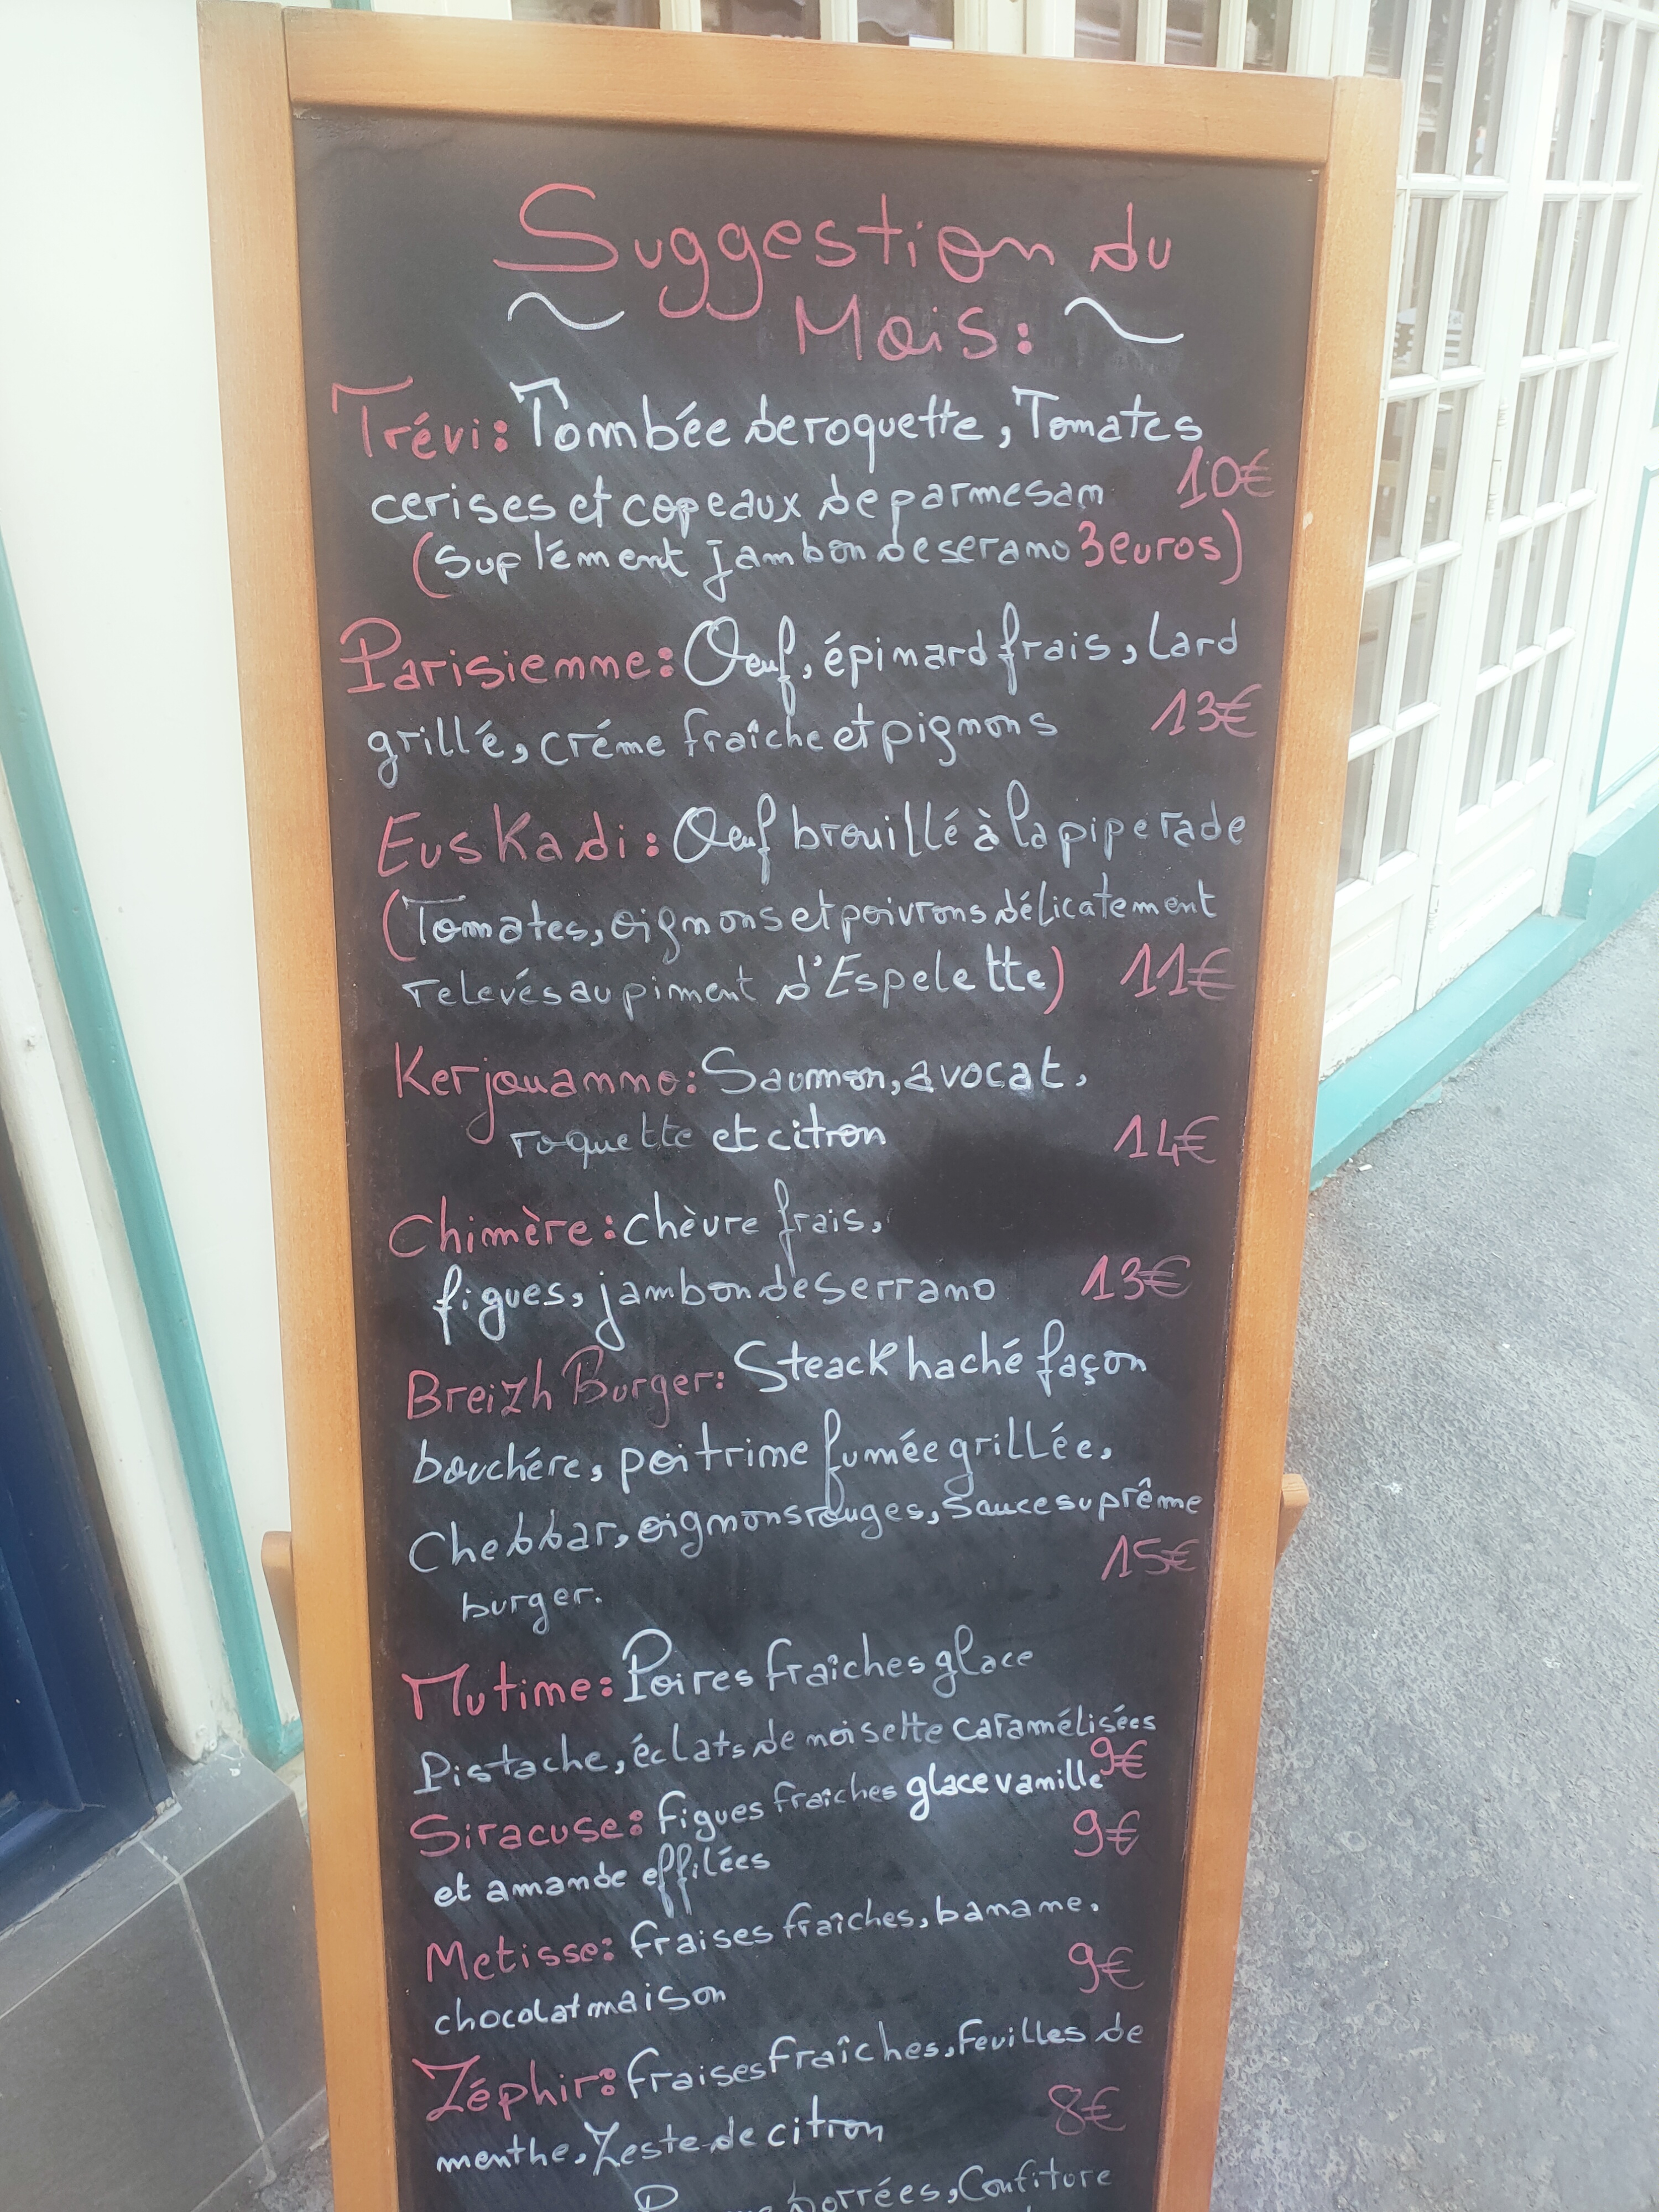 Suggestion du
~ Mois: ~
Trévi: Tombée de roquette, Tomates
cerises et copeaux de parmesan 10€
(suplément jambon de seramo 3 euros)
Parisienne: Oeuf, épinard frais, lard
grillé, créme fraîche et pignons 13€
Euskadi: Oeuf brouillé à la piperade
(Tomates, oignons et poivrons délicatement
relevés au piment d'Espelette) 11€
Kerjouanno: Saumon, avocat,
roquette et citron 14€
Chimère: chèvre frais,
figues, jambon de serrano 13€
Breizh Burger: Steack haché façon
bouchére, poitrine fumée grillée,
Cheddar, oignons rouges, sauce suprême
burger. 15€
Mutine: Poires fraîches glace
Pistache, éclats de noisette caramélisées
9€
Siracuse: figues fraîches glace vanille
et amande effilées 9€
Metisse: fraises fraîches, banane,
chocolat maison 9€
Zéphir: fraises fraîches, feuilles de
menthe, Zeste de citron 8€
Confiture